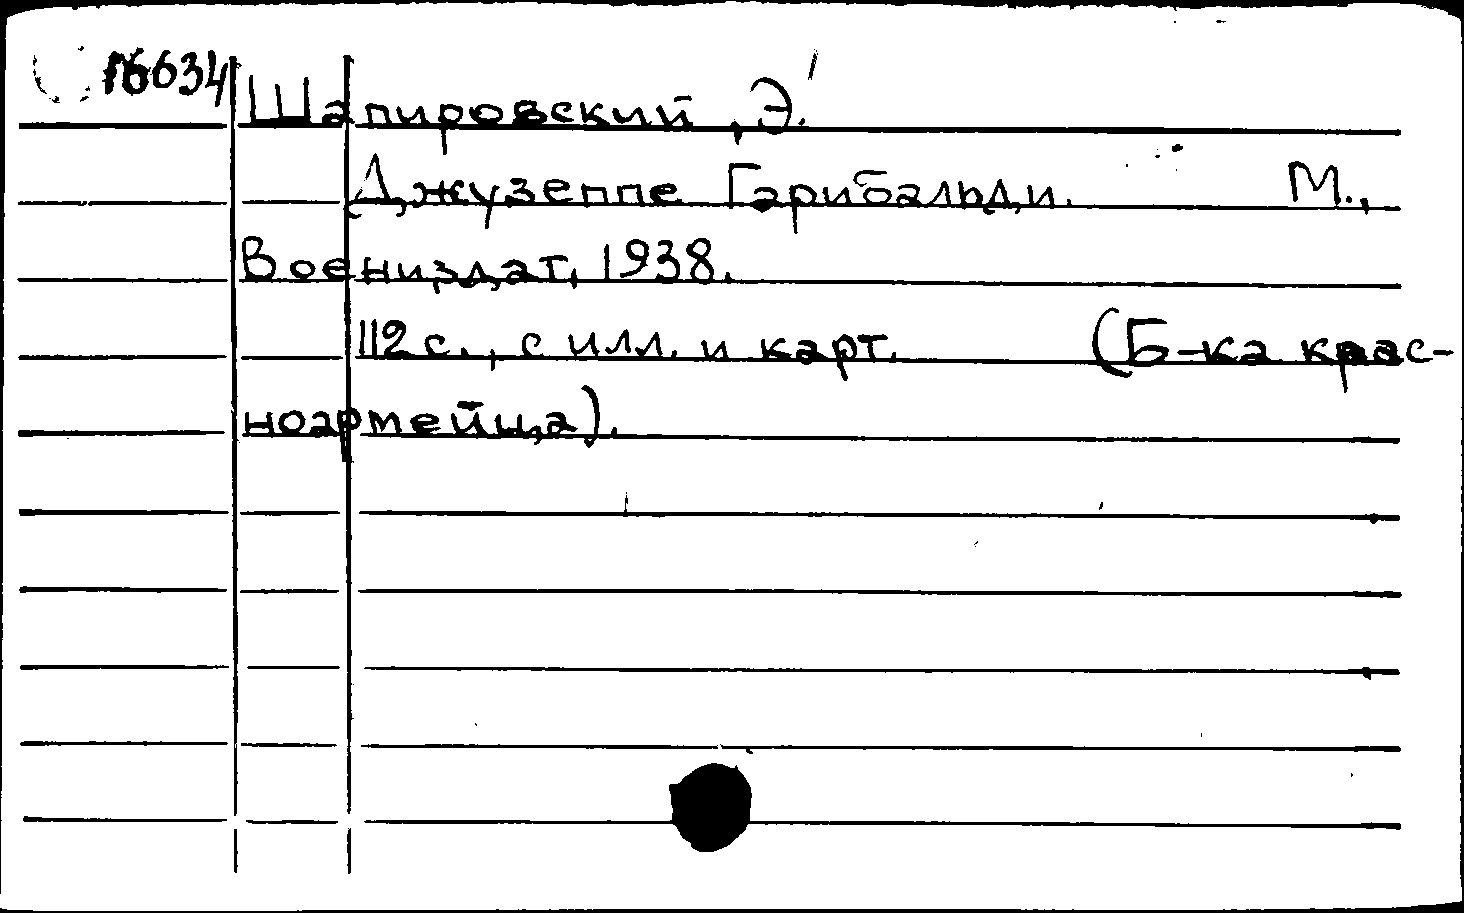 16634 Шапировский, Э.
Джузеппе Гарибальди. М.,
Воениздат, 1938.
112 с., с илл. и карт. (Б-ка крас-
ноармейца).